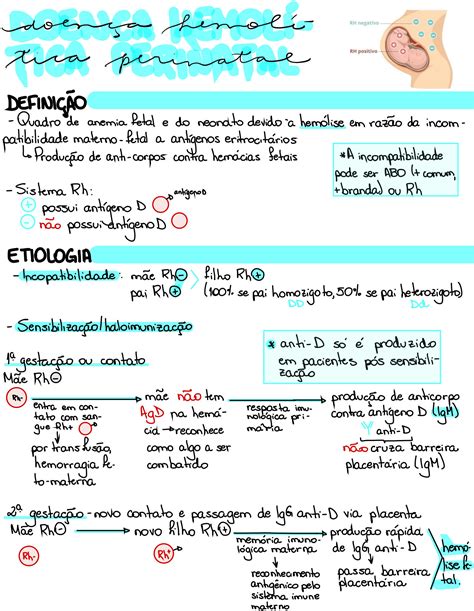 doença hemolí-
tica perinatal
RH negativo
RH positivo
DEFINIÇÃO
- Quadro de anemia fetal e do neonato devido a hemólise em razão da incom-
patibilidade materno-fetal a antígenos eritrocitários
↳ Produção de anti-corpos contra hemácias fetais
* A incompatibilidade
pode ser ABO (+ comum,
+branda) ou Rh
- Sistema Rh:
antígeno D
+ possui antígeno D
- não possui antígeno D
ETIOLOGIA
- Incopatibilidade: mãe Rh⊖ > filho Rh⊕
pai Rh⊕ (100% se pai homozigoto, 50% se pai heterozigoto)
DD Dd
- Sensibilização/haloimunização
* anti-D só é produzido
em pacientes pós sensibili-
zação
1ª gestação ou contato
Mãe Rh⊖
Rh-
entra em con-
tato com san-
gue Rh+
↓
por transfusão,
hemorragia fe-
to-materna
mãe não tem
AgD na hemá-
cia → reconhece
como algo a ser
combatido
resposta imu-
nológica pri-
mária
produção de anticorpo
contra antígeno D (IgM)
anti-D
não cruza barreira
placentária (IgM)
2ª gestação - novo contato e passagem de IgG anti-D via placenta
Mãe Rh⊖ → novo filho Rh⊕
Rh-
Rh+
memória imuno-
lógica materna
↓
reconhecimento
antigênico pelo
sistema imune
materno
produção rápida
de IgG anti-D
↓
passa barreira
placentária
hemó-
lise fe-
tal.